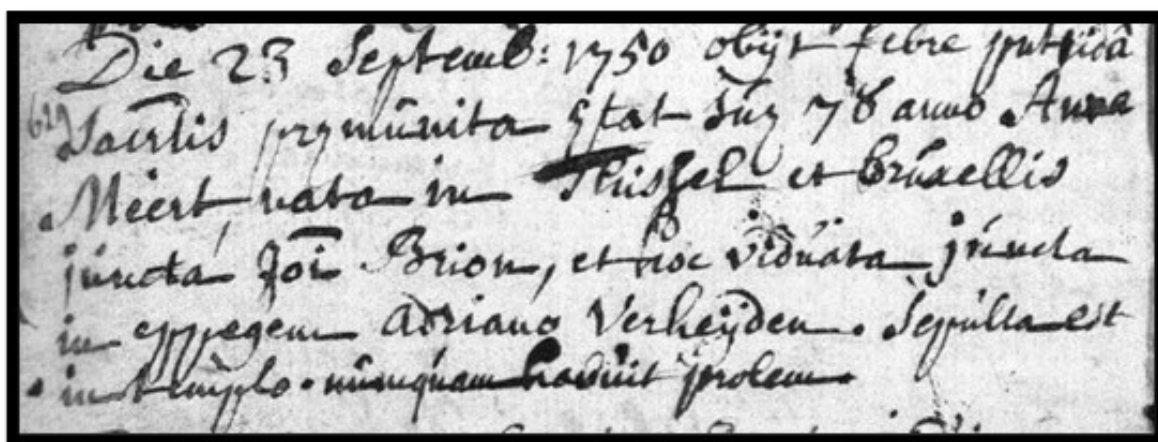 Die 23 Septemb: 1750 obijt febre putridâ
629 Sacrtis prȩmûnita ȩtat suȩ 78 anno Anna
Meert nata in Thissel et brûxellis
júncta Joi Brion, et hoc vidûata júncta
in eppegem Adriano Verheÿden. Sepûlta est
in templo. nûmqúam habúit prolem